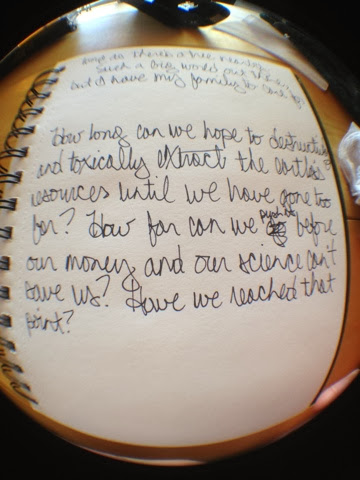 there's a tree nearby
Such a big world out there...
but I have my family to
How long can we hope to destructively
and toxically extract the earth's
resources until we have gone too
far? How far can we push it before
our money and our science can't
save us? Have we reached that
point?